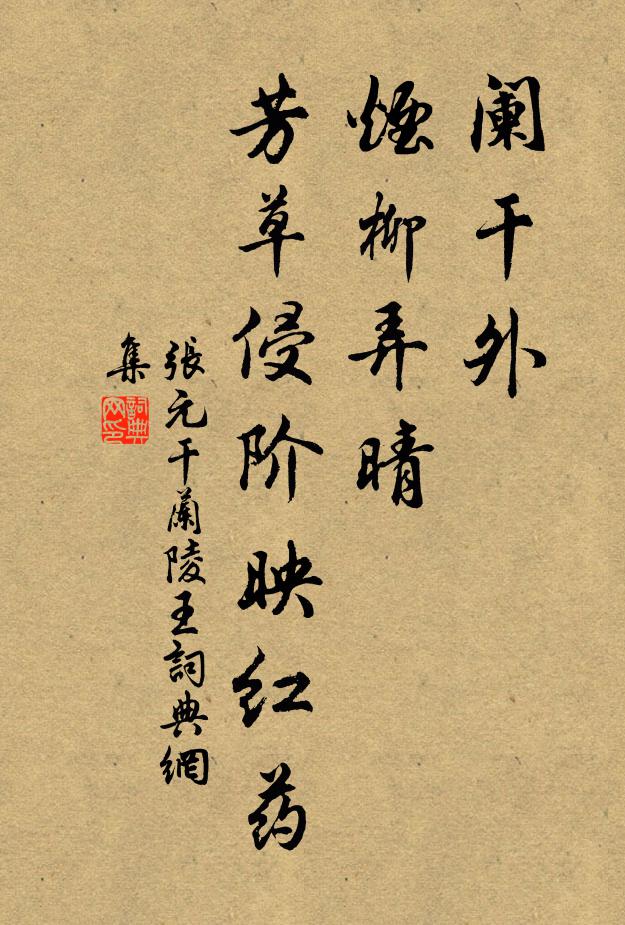 阑干外
烟柳弄晴
芳草侵阶映红药
張元干蘭陵王詞典網
集
詞典网印